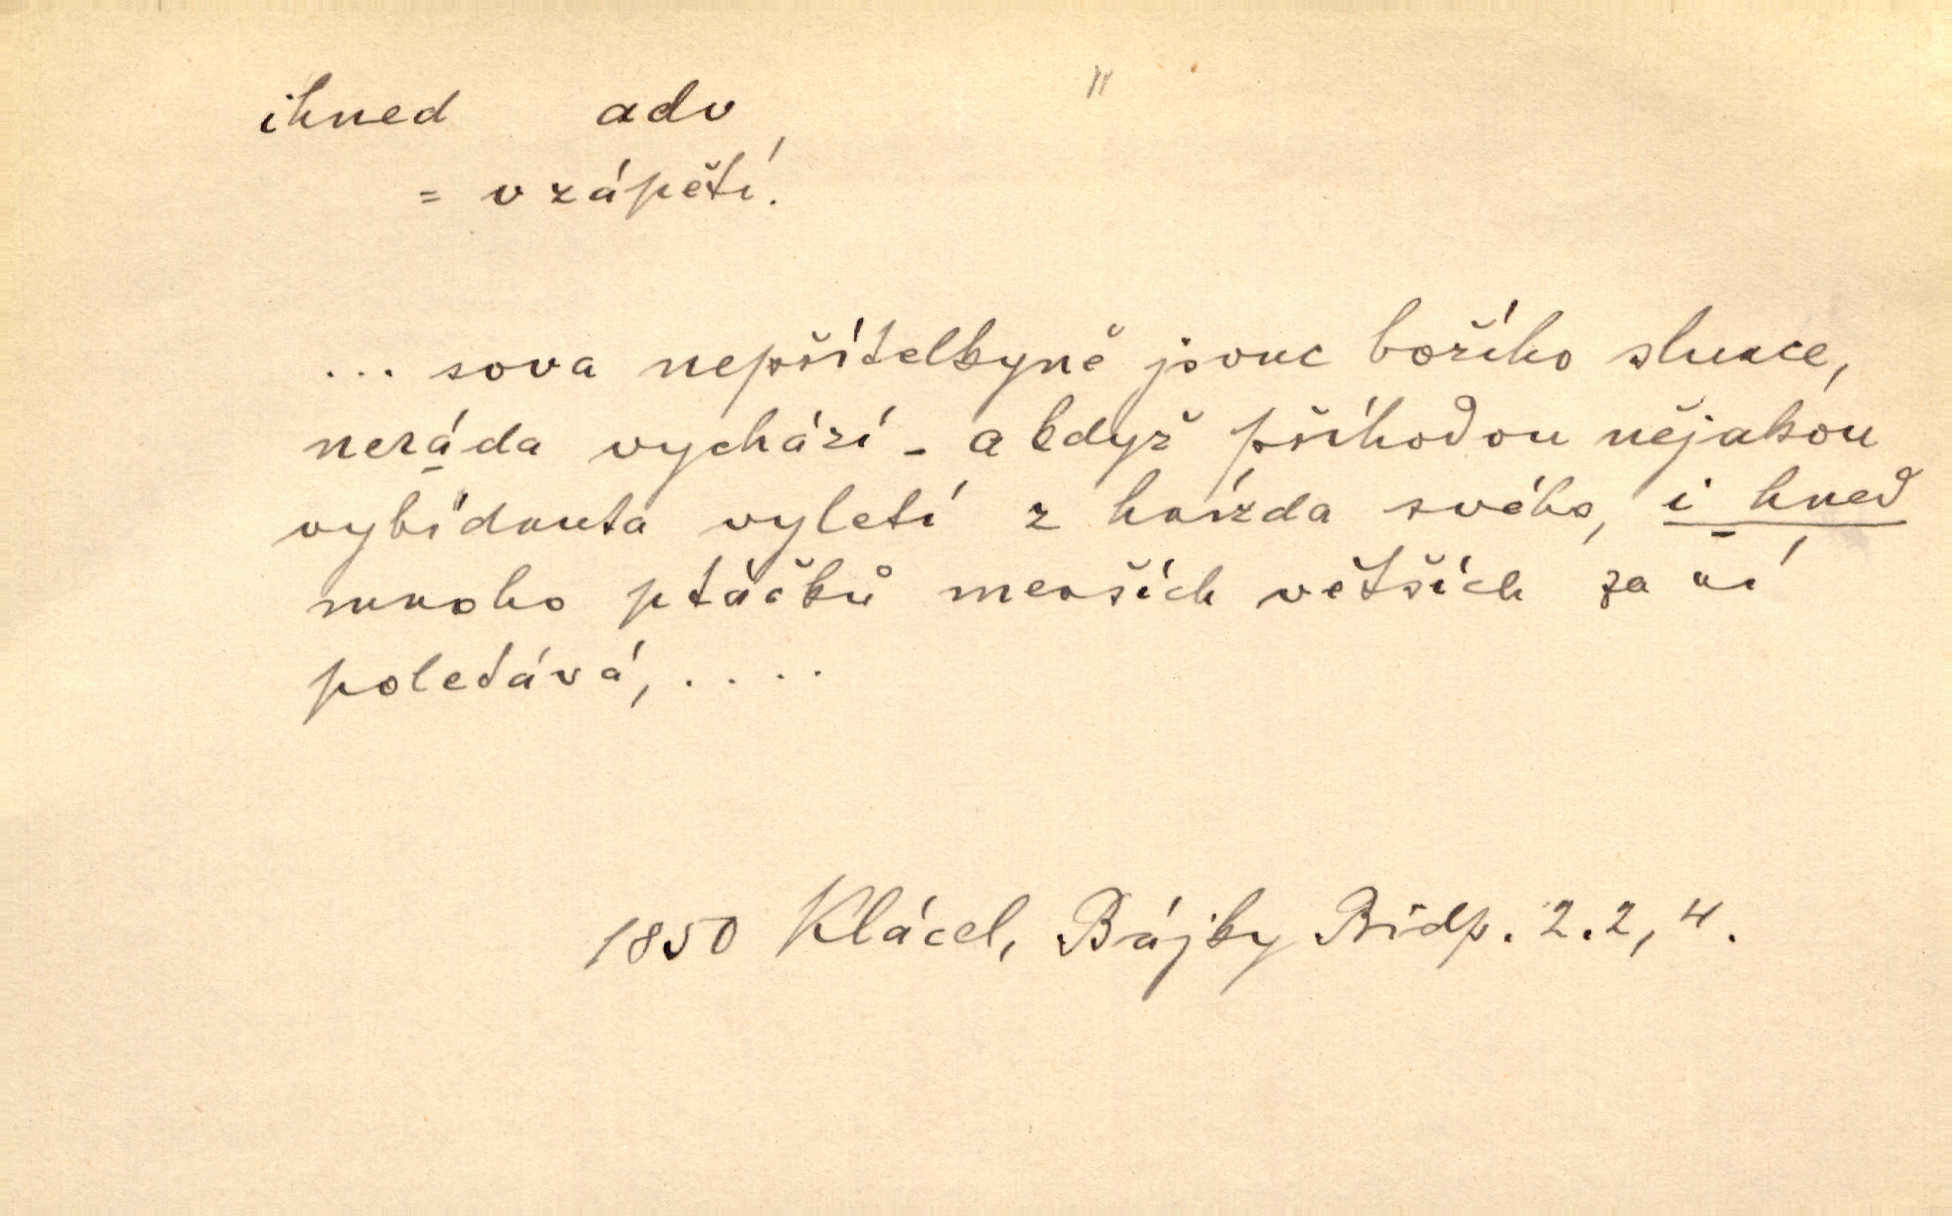 ihned adv
= v zápětí.
... sova nepřítelkyně jsouc božího slunce,
neráda vychází - a když příhodou nějakou
vybídnuta vyletí z hnízda svého, i hned
mnoho ptáčků menších větších za ní
poletává, ....
1850 Klácel, Bájky Bidp. 2.2, 4.